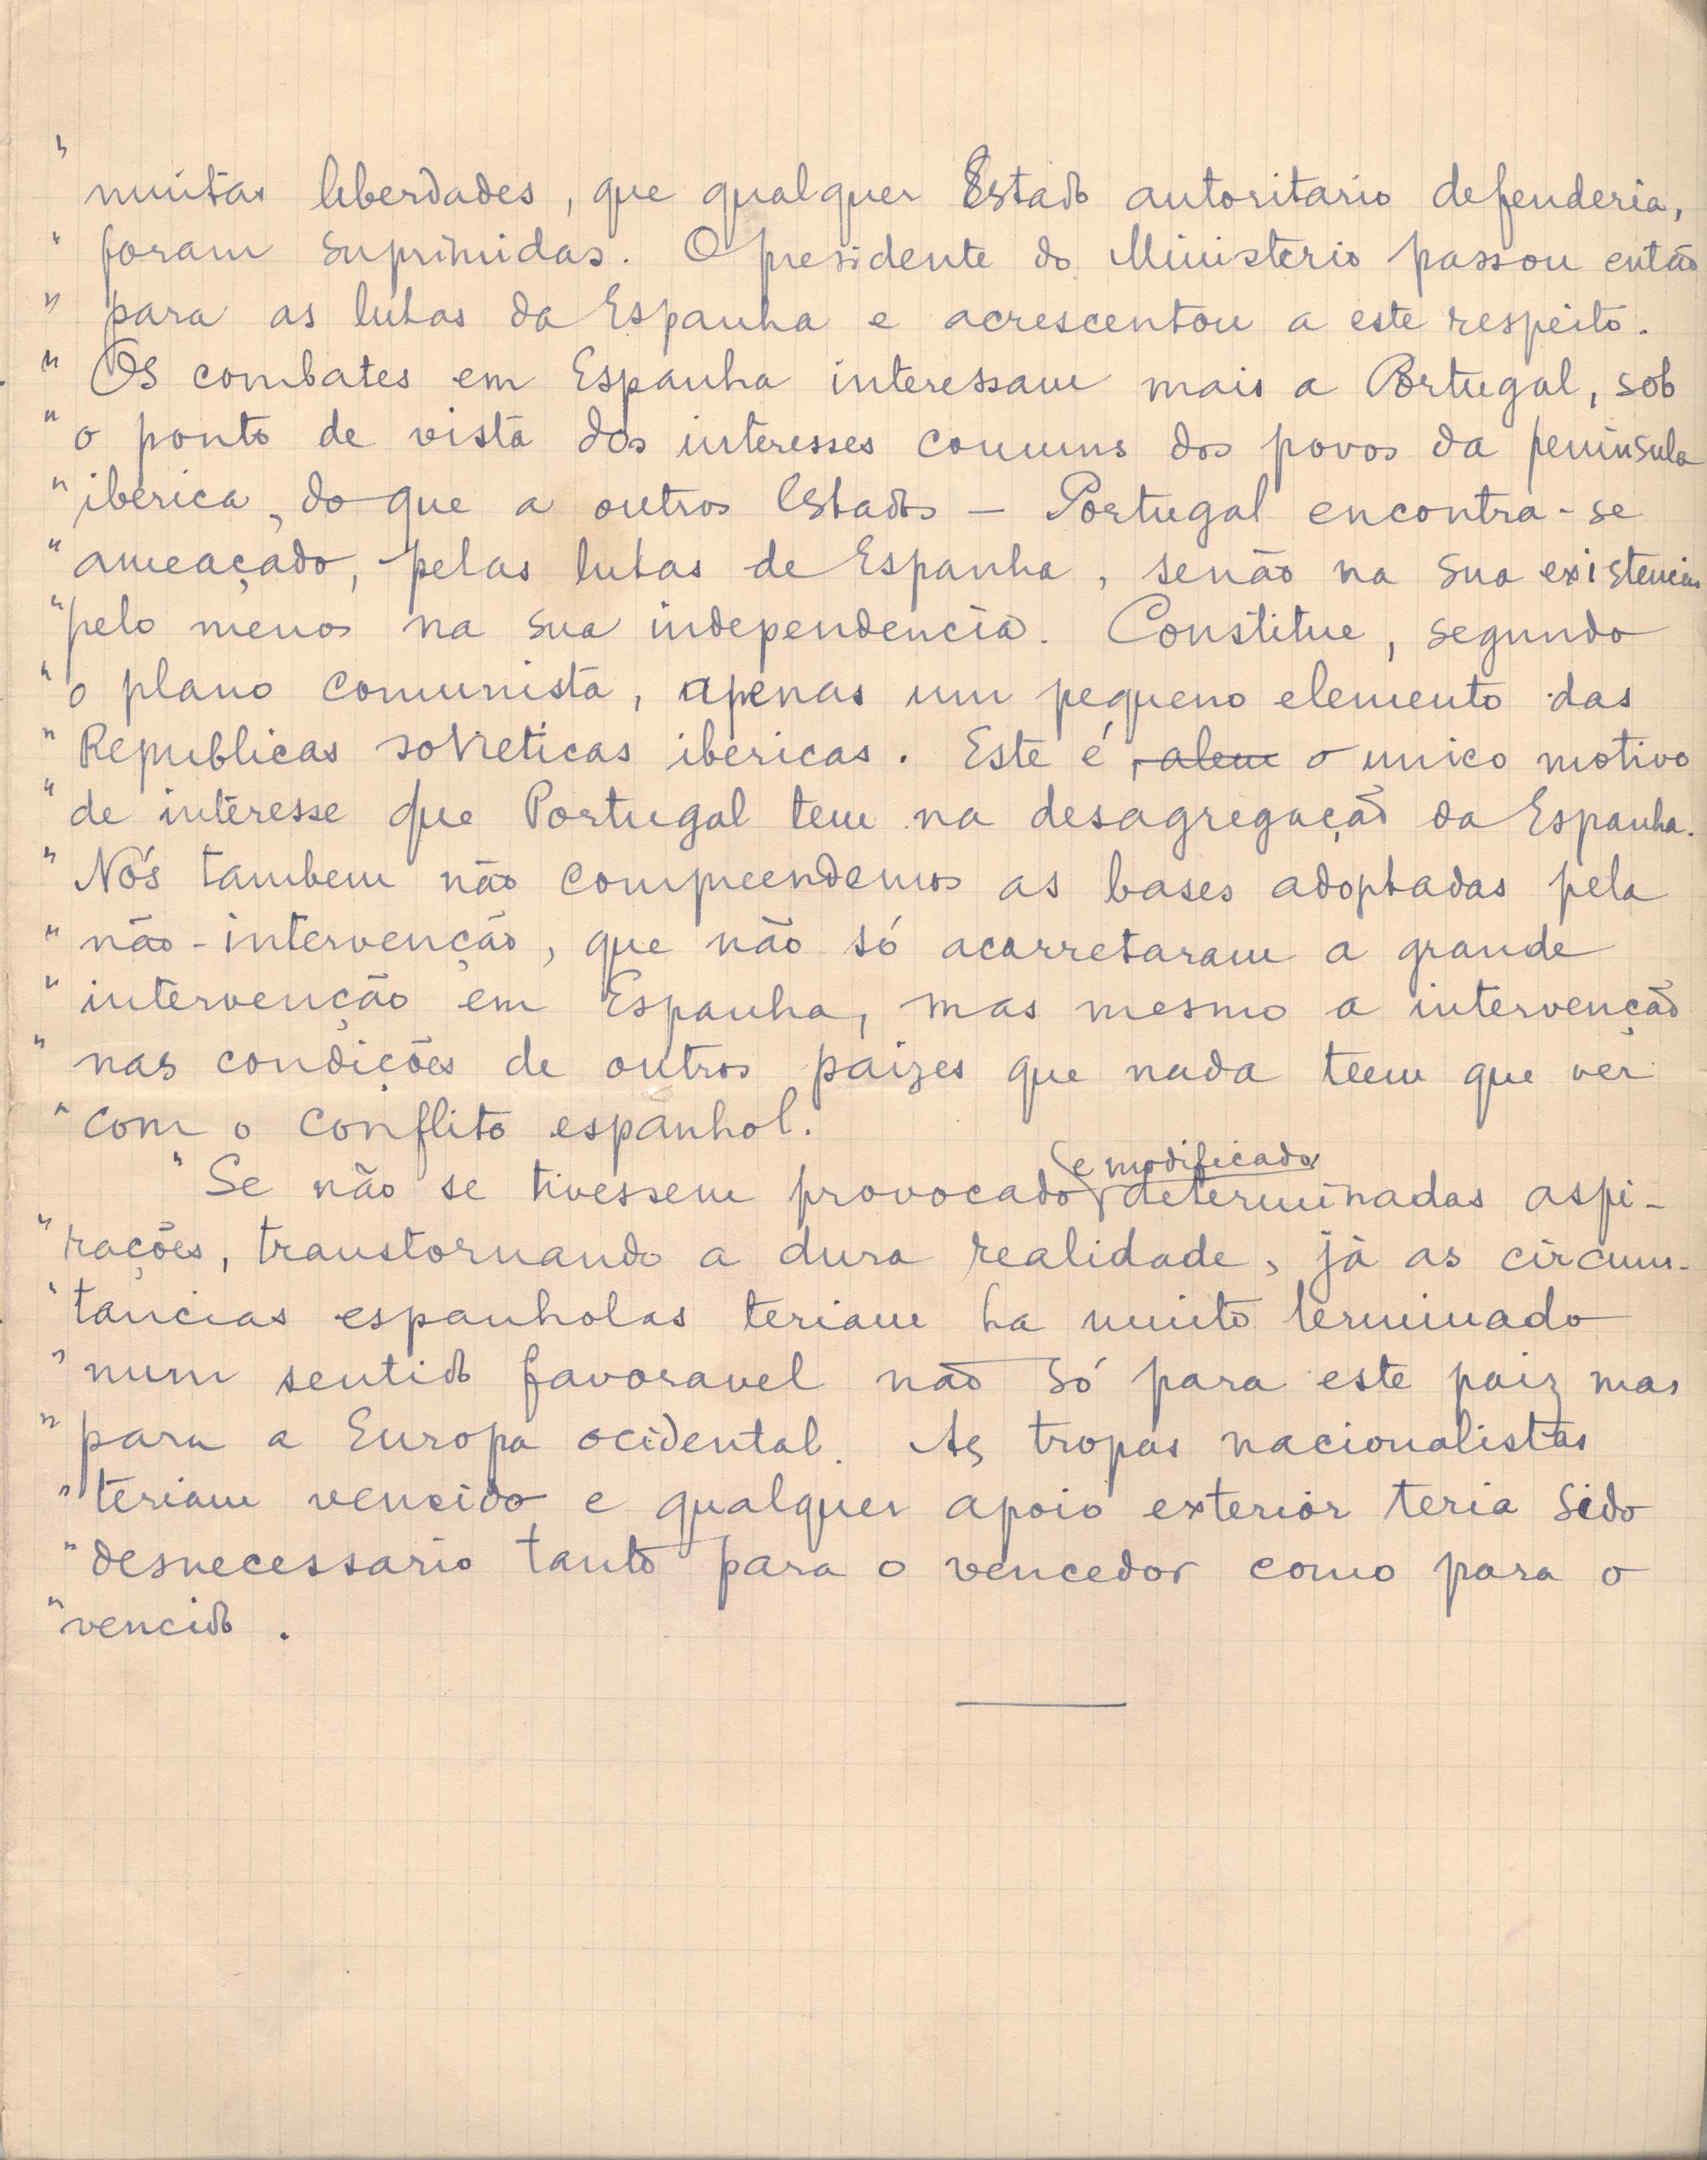 " muitas liberdades, que qualquer Estado autoritario defenderia,
" foram suprimidas. O presidente do Ministerio passou então
" para as lutas da Espanha e acrescentou a este respeito.
" Os combates em Espanha interessam mais a Portugal, sob
" o ponto de vista dos interesses comuns dos povos da peninsula
" iberica, do que a outros Estados — Portugal encontra-se
" ameaçado, pelas lutas de Espanha, senão na sua existencia
" pelo menos na sua independencia. Constitue, segundo
" o plano comunista, apenas um pequeno elemento das
" Republicas sovieticas ibericas. Este é, alem o unico motivo
" de interesse que Portugal tem na desagregação da Espanha.
" Nós tambem não compreendemos as bases adoptadas pela
" não-intervenção, que não só acarretaram a grande
" intervenção em Espanha, mas mesmo a intervenção
" nas condições de outros paizes que nada teem que ver
" com o conflito espanhol.
e modificado
" Se não se tivessem provocado determinadas aspi-
" rações, transtornando a dura realidade, já as circum-
" tancias espanholas teriam ha muito terminado
" num sentido favoravel não só para este paiz mas
" para a Europa ocidental. As tropas nacionalistas
" teriam vencido e qualquer apoio exterior teria sido
" desnecessario tanto para o vencedor como para o
" vencido.